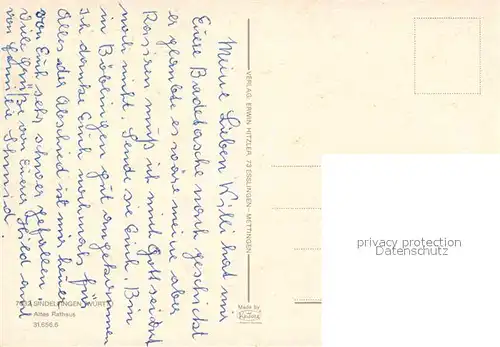 Meine Lieben Willi hat mir
Eure Badetasche nach geschickt
er glaubte es wäre meine aber
Rasieren muß ich mich Gott sei dank
noch nicht. Sende sie Euch. Bin
in Böblingen gut angekommen
Ich danke Euch nochmals für
alles der Abschied ist mir heuer
von Euch sehr schwer gefallen.
Viele Grüße von Eurer Hilde und
von Familie Schmid.
VERLAG ERWIN HITZLER, 73 ESSLINGEN-METTINGEN
7032 SINDELFINGEN (WÜRTT.)
Altes Rathaus
31.656.6
Made by
privacy protection
Datenschutz